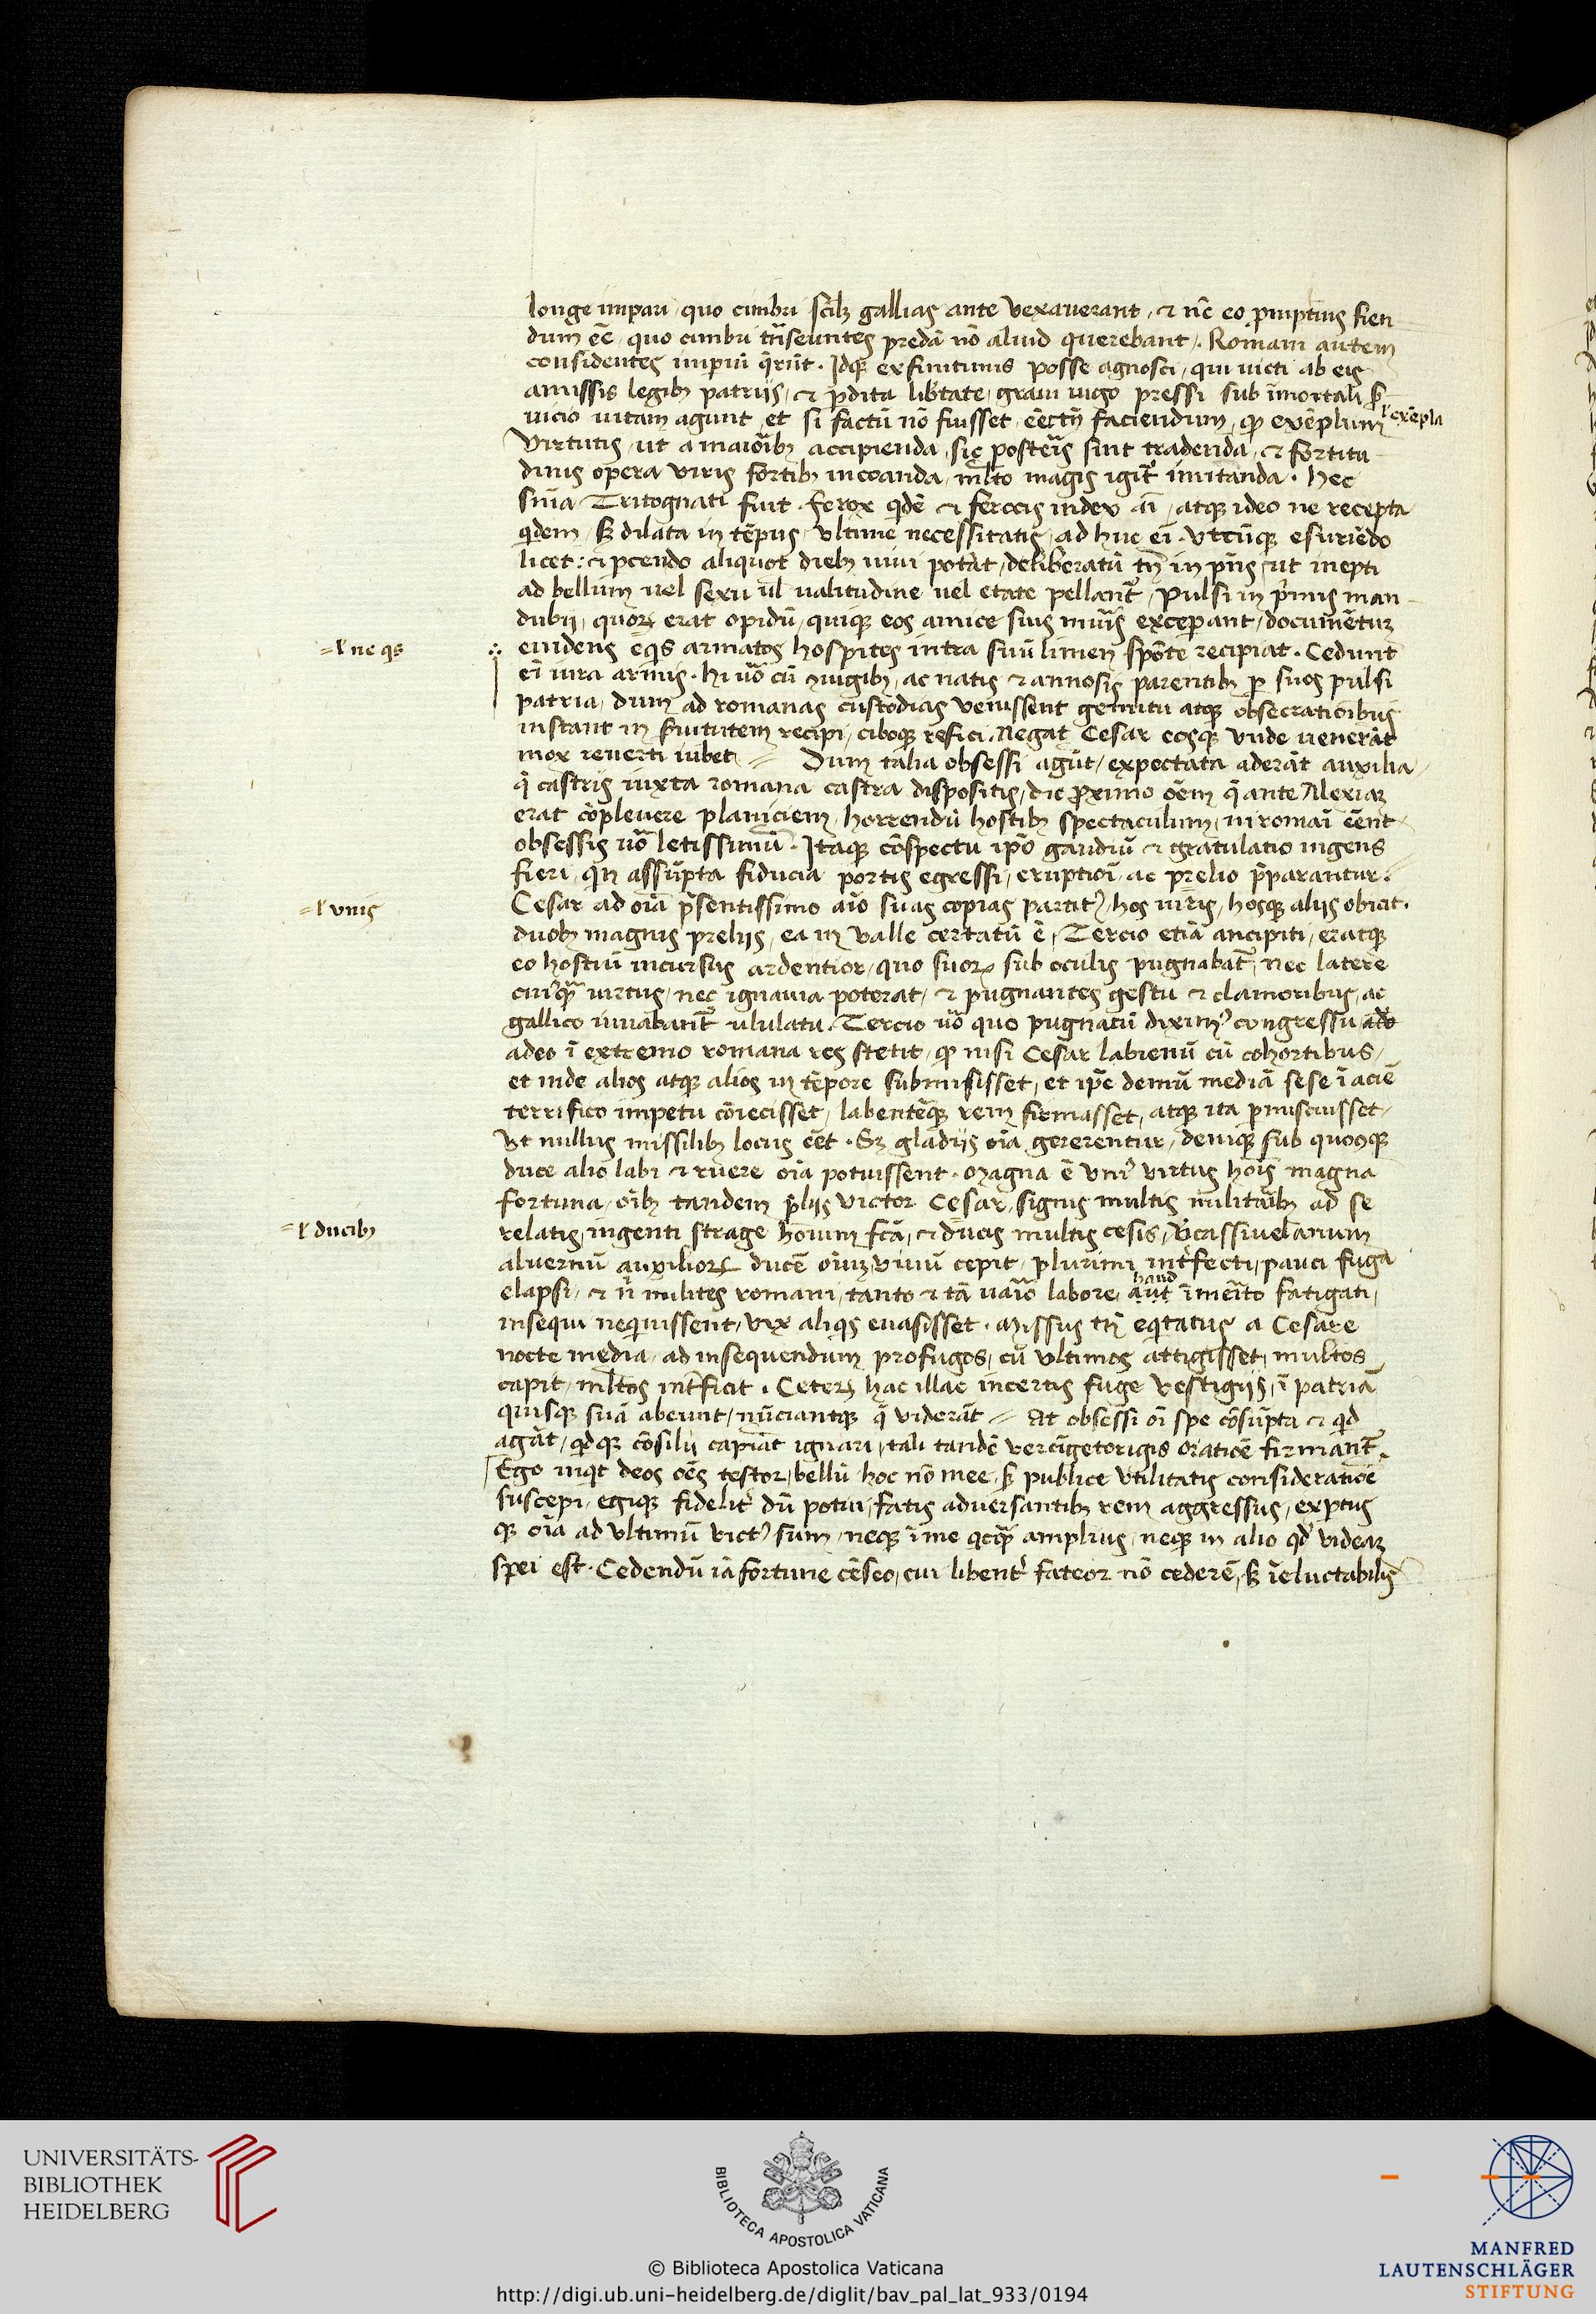 longe impari, quo cimbri scilꝫ gallias ante vexaverant, ⁊ nc̄ eo ꝓmptius fien
dum eē, quo cimbri tn̄seuntes predā nō aliud querebant. Romani autem
considentes imꝑiū q̄rūt. Idqꝫ ex finitimis posse agnosci, qui victi ab eis
amissis legibꝫ patrijs, ⁊ ꝑdita lib̄tate, gravi iugo pressi sub īmortali ẜ
uicio uitam agunt, et si factū nō fuisset, eēt tn̄ faciendum, qꝫ exēplum ł exēpla
Virtutis, ut a maiōibꝫ accipienda, sic posteris sint tradenda, ⁊ fortitu
dinis opera viris fortibꝫ inchoanda, ml̄to magis igit᷑ imitanda. Hec
sn̄ia Critognati fuit. ferox qdē ⁊ ferocis index aī, atqꝫ ideo ne recepta
qdem, ꝫ dilata in tēpus ultime necessitatis, ad huc eī. Utcūqꝫ esuriēdo
licet: ⁊ ꝑcendo aliquot diebꝫ vivi potāt, deliberatū tn̄ in pn̄s, ut inepti
ad bellum uel sexu ul̄ valitudine uel etate pellant᷑, Pulsi in p̄mis man
dubij, quoꝝ erat opidū, quiqꝫ eos amice suis muris exceperant, documētuꝫ
=ł ne qs
euidens eqs̄ armatos hospites intra suū limen spōte recipiat. Cedunt
eī iura armis. Hi uō cū ꝯiugibꝫ, ac natis ⁊ annosis parentibꝫ ꝑ suos pulsi
patria, dum ad romanas custodias venissent gemitu atqꝫ obsecrationibus
instant in ẜuitutem recipi, ciboqꝫ refici. Negat Cesar eosqꝫ unde uenerāt
mox reuerti iubet = Dum talia obsessi agūt, expectata aderāt auxilia,
q̄ castris iuxta romana castra dispositis, die ꝓximo oēm q̄ ante Alexiaꝫ
erat cōplevere planiciem, horrendū hostibꝫ spectaculum, ni romāi eēnt
obsessis uō letissimū. Itaqꝫ cōspectu ip̄o gaudiū ⁊ gratulatio ingens
fieri, qn̄ assūpta fiducia portis egressi, eruptiōi, ac prelio p̄parantur.
=ł vnis
Cesar ad oīa p̄sentissimo aīo suas copias partit᷑, hos vir̄is, hosqꝫ alijs obicit.
duobꝫ magnis prelijs, ea in valle certatū ē, Tercio etiā ancipiti, eratqꝫ
eo hostiū incursus ardentior, quo suoꝝ sub oculis pugnabat᷑, nec latere
cuiqꝫ̄ uirtus, nec ignauia poterat, ⁊ pugnantes gestu ⁊ clamoribus, ac
gallico iuuabant᷑ ululatu. Tercio uō quo pugnatū diximꝰ congressu, ado
adeo ī extremo romana res stetit, qꝫ nisi Cesar labienū cū cohortibus,
et inde alios atqꝫ alios in tēpore submisisset, et ip̄e demū mediā sese ī aciē
terrifico impetu cōiecisset, labentēqꝫ rem firmasset, atqꝫ ita ꝑmiscuisset,
Ut nullus missilibꝫ locus eēt. Sꝫ gladijs oīa gererentur, deniqꝫ sub quocqꝫ
duce alio labi ⁊ ruere oīa potuissent. Magna ē uniꝰ virtus hoīs magna
fortuna, oībꝫ tandem p̄lijs victor Cesar, signis multis militaribꝫ ad se
=ł ducibꝫ
relatis, ingenti strage hoīum fc̄a, ⁊ ducis multis cesis, Vercassivelanum
alvernū auxilioꝝ ducē oīuꝫ, vivū cepit, plurimi int᷑fecti, pauci fuga
elapsi, ⁊ n̄ milites romani, tanto ⁊ tā vaīo labore, aut haud īmerito fatigati,
insequi nequissent, vix aliqs evasisset. Missus tn̄ eqtatus a Cesare
nocte media, ad insequendum profugos, cū ultimos attigisset, multos
capit, ml̄tos int᷑ficit. Ceteri hac illac incertis fuge vestigijs, ī patriā
quisqꝫ suā abeunt, nūciantqꝫ q̄ viderāt = At obsessi oī spe cōsūpta ⁊ qd
agāt, qdqꝫ cōsilij capiāt ignari, tali tandē vercīgetorigis oratiōe firmant᷑.
Ego inqt deos oēs testor, bellū hoc nō mee, ẜ publice utilitatis consideratiōe
suscepi, egiqꝫ fidelit᷑ dū potui, fatis adversantibꝫ rem aggressus, exꝑtus
qꝫ oīa ad ultimū victꝰ sum, neqꝫ ī me qcqꝫ̄ amplius, neqꝫ in alio qd videaꝫ
spei est. Cedendū iā fortune cēseo, cui libent᷑ fateor nō cederē, ẜ īeluctabilis
UNIVERSITÄTS-
BIBLIOTHEK
HEIDELBERG
BIBLIOTECA APOSTOLICA VATICANA
© Biblioteca Apostolica Vaticana
http://digi.ub.uni-heidelberg.de/diglit/bav_pal_lat_933/0194
MANFRED
LAUTENSCHLÄGER
STIFTUNG